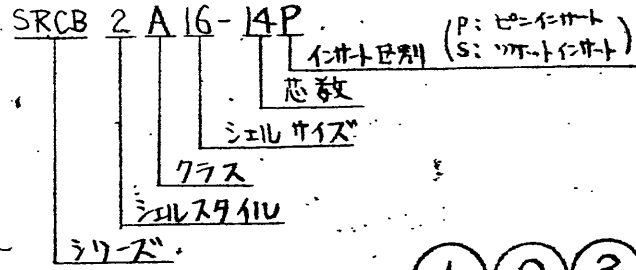 SRCB 2 A 16-14P
インサート区別 (P: ピンインサート
S: ソケットインサート)
芯数
シェルサイズ
クラス
シェルスタイル
シリーズ
1 2 3